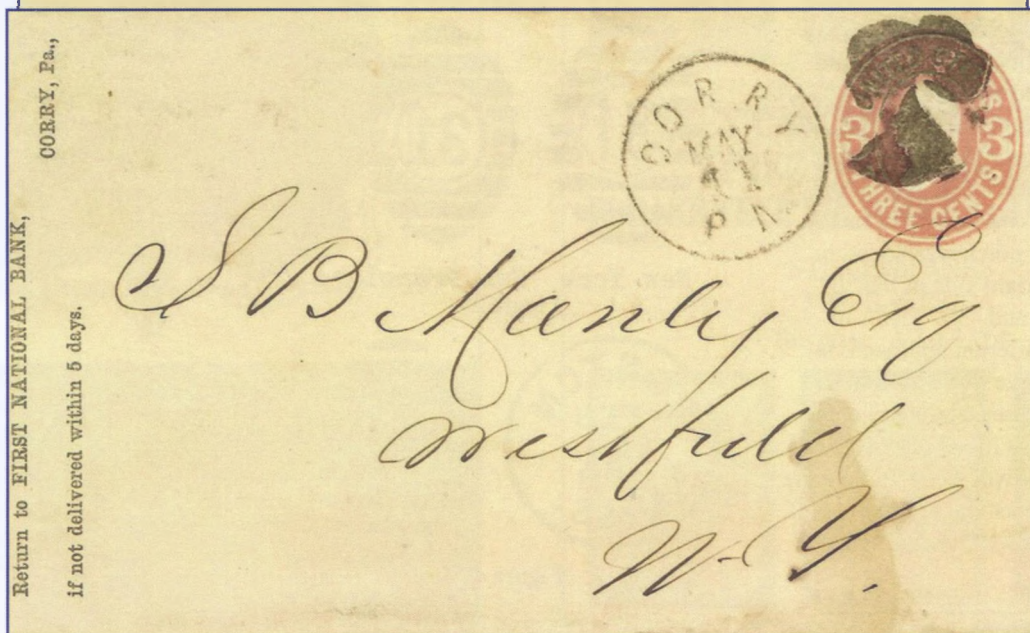 Return to FIRST NATIONAL BANK,
CORRY, Pa.,
if not delivered within 5 days.
CORRY
MAY
PA
3 3
THREE CENTS
J B Manly Esq
Westfield
N. Y.